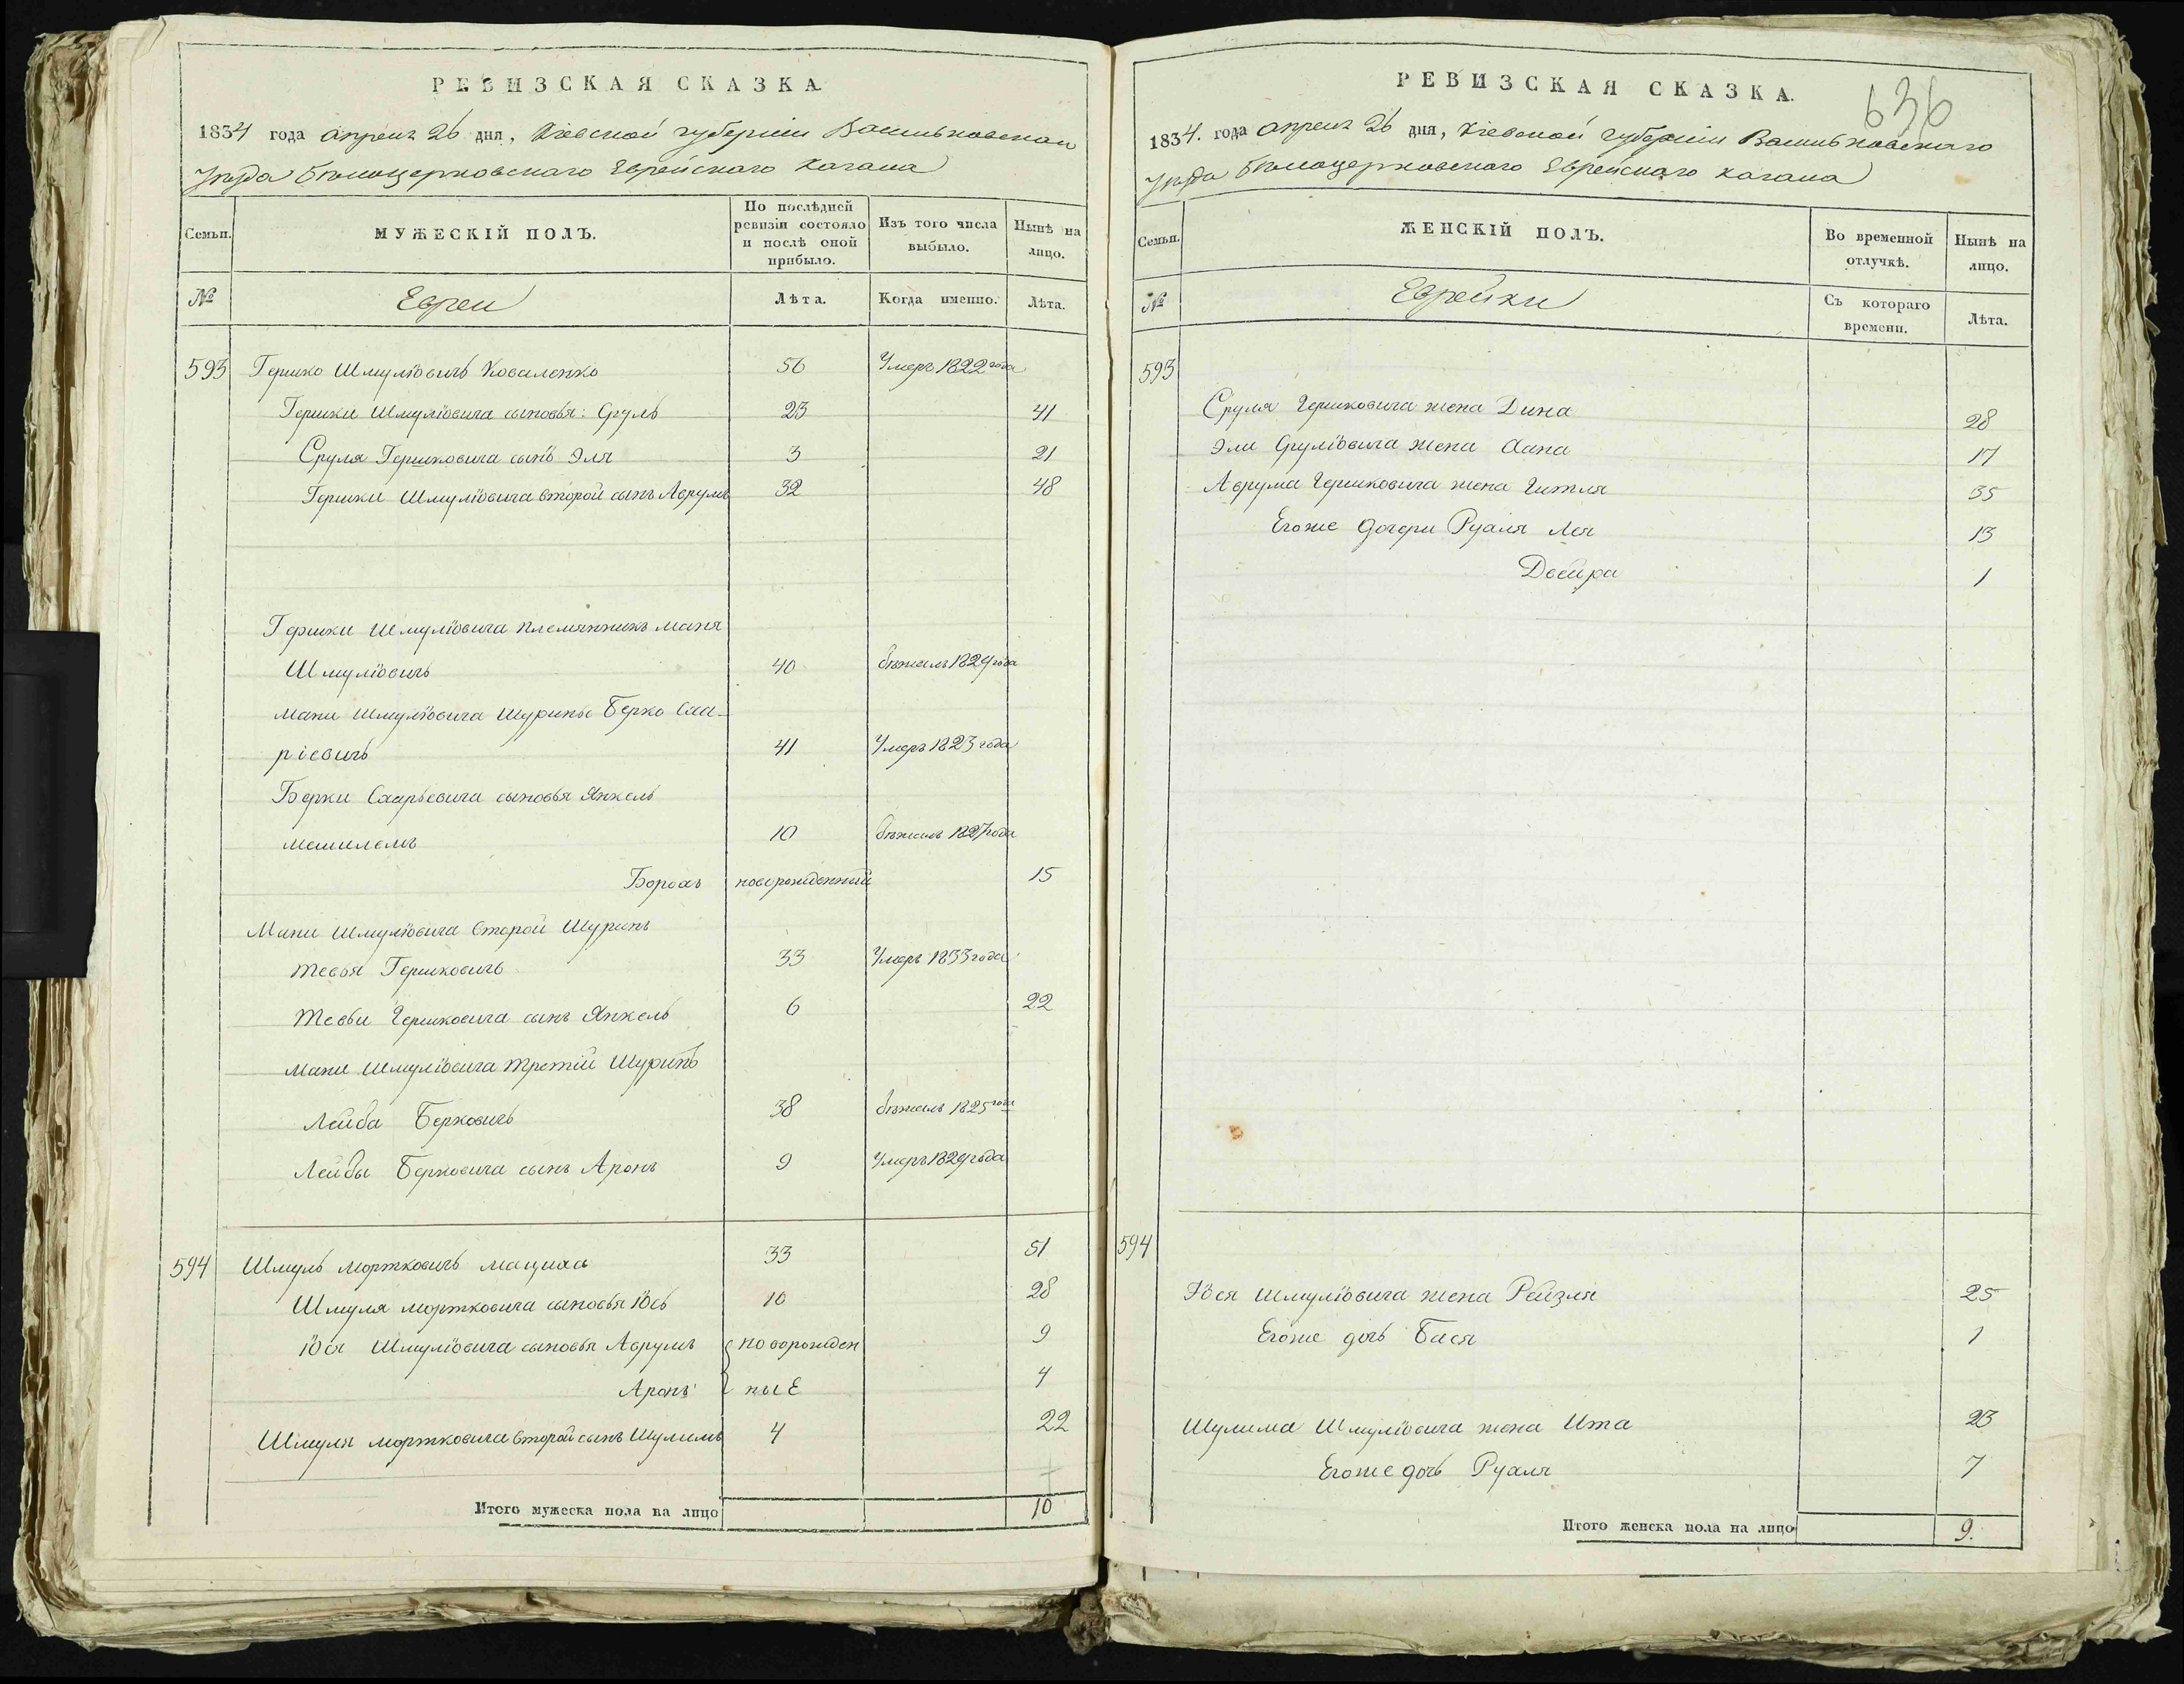 РЕВИЗСКАЯ СКАЗКА.
1834 года апреля 26 дня, Кіевской губерніи Васильковскаго
Уѣзда Бѣлоцерковскаго Еврейскаго Кагала
Семьи.
МУЖЕСКІЙ ПОЛЪ.
По послѣдней ревизіи состояло и послѣ оной прибыло.
Изъ того числа выбыло.
Нынѣ на лицо.
№
Евреи
Лѣта.
Когда именно.
Лѣта.
593 Гершко Шмулїовичъ Коваленко 56 Умеръ 1822 года
Гершки Шмулїовича сыновья: Сруль 23 41
Сруля Гершковича сынъ Эля 3 21
Гершки Шмулїовича второй сынъ Аврумъ 32 48
Гершки Шмулїовича племянникъ Маня
Шмулїовичъ 40 бѣжалъ 1829 года
Мани Шмулїовича Шуринъ Берко Сха-
ріевичъ 41 Умеръ 1823 года
Берки Схарьевича сыновья Янкель
мешилемъ 10 бѣжалъ 1827 года
Борохъ новорожденный 15
Мани Шмулїовича второй Шуринъ
Тевья Гершковичъ 33 Умеръ 1833 года
Тевьи Гершковича сынъ Янкель 6 22
Мани Шмулїовича третій Шуринъ
Лейба Берковичъ 38 бѣжалъ 1825 года
Лейбы Берковича сынъ Аронъ 9 Умеръ 1829 года
594 Шмуль Мортковичъ 33 51
Шмуля Мортковича сыновья Їось 10 28
Їося Шмулїовича сыновья Аврумъ новорожден 9
Аронъ ные 4
Шмуля Мортковича второй сынъ Шулимъ 4 22
Итого мужеска пола на лицо 10
РЕВИЗСКАЯ СКАЗКА.
636
1834. года апреля 26 дня, Кіевской губерніи Васильковскаго
Уѣзда Бѣлоцерковскаго Еврейскаго Кагала
Семьи.
ЖЕНСКІЙ ПОЛЪ.
Во временной отлучкѣ.
Нынѣ на лицо.
№
Еврейки
Съ котораго времени.
Лѣта.
593
Сруля Гершковича жена Дина 28
Эли Срулїовича жена Хана 17
Аврума Гершковича жена Гитля 35
Егоже дочери Рухля Лея 13
Двейра 1
594
Їося Шмулїовича жена Рейзля 25
Егоже дочь Бася 1
Шулима Шмулїовича жена Ита 23
Егоже дочь Рухля 7
Итого женска пола на лицо 9.